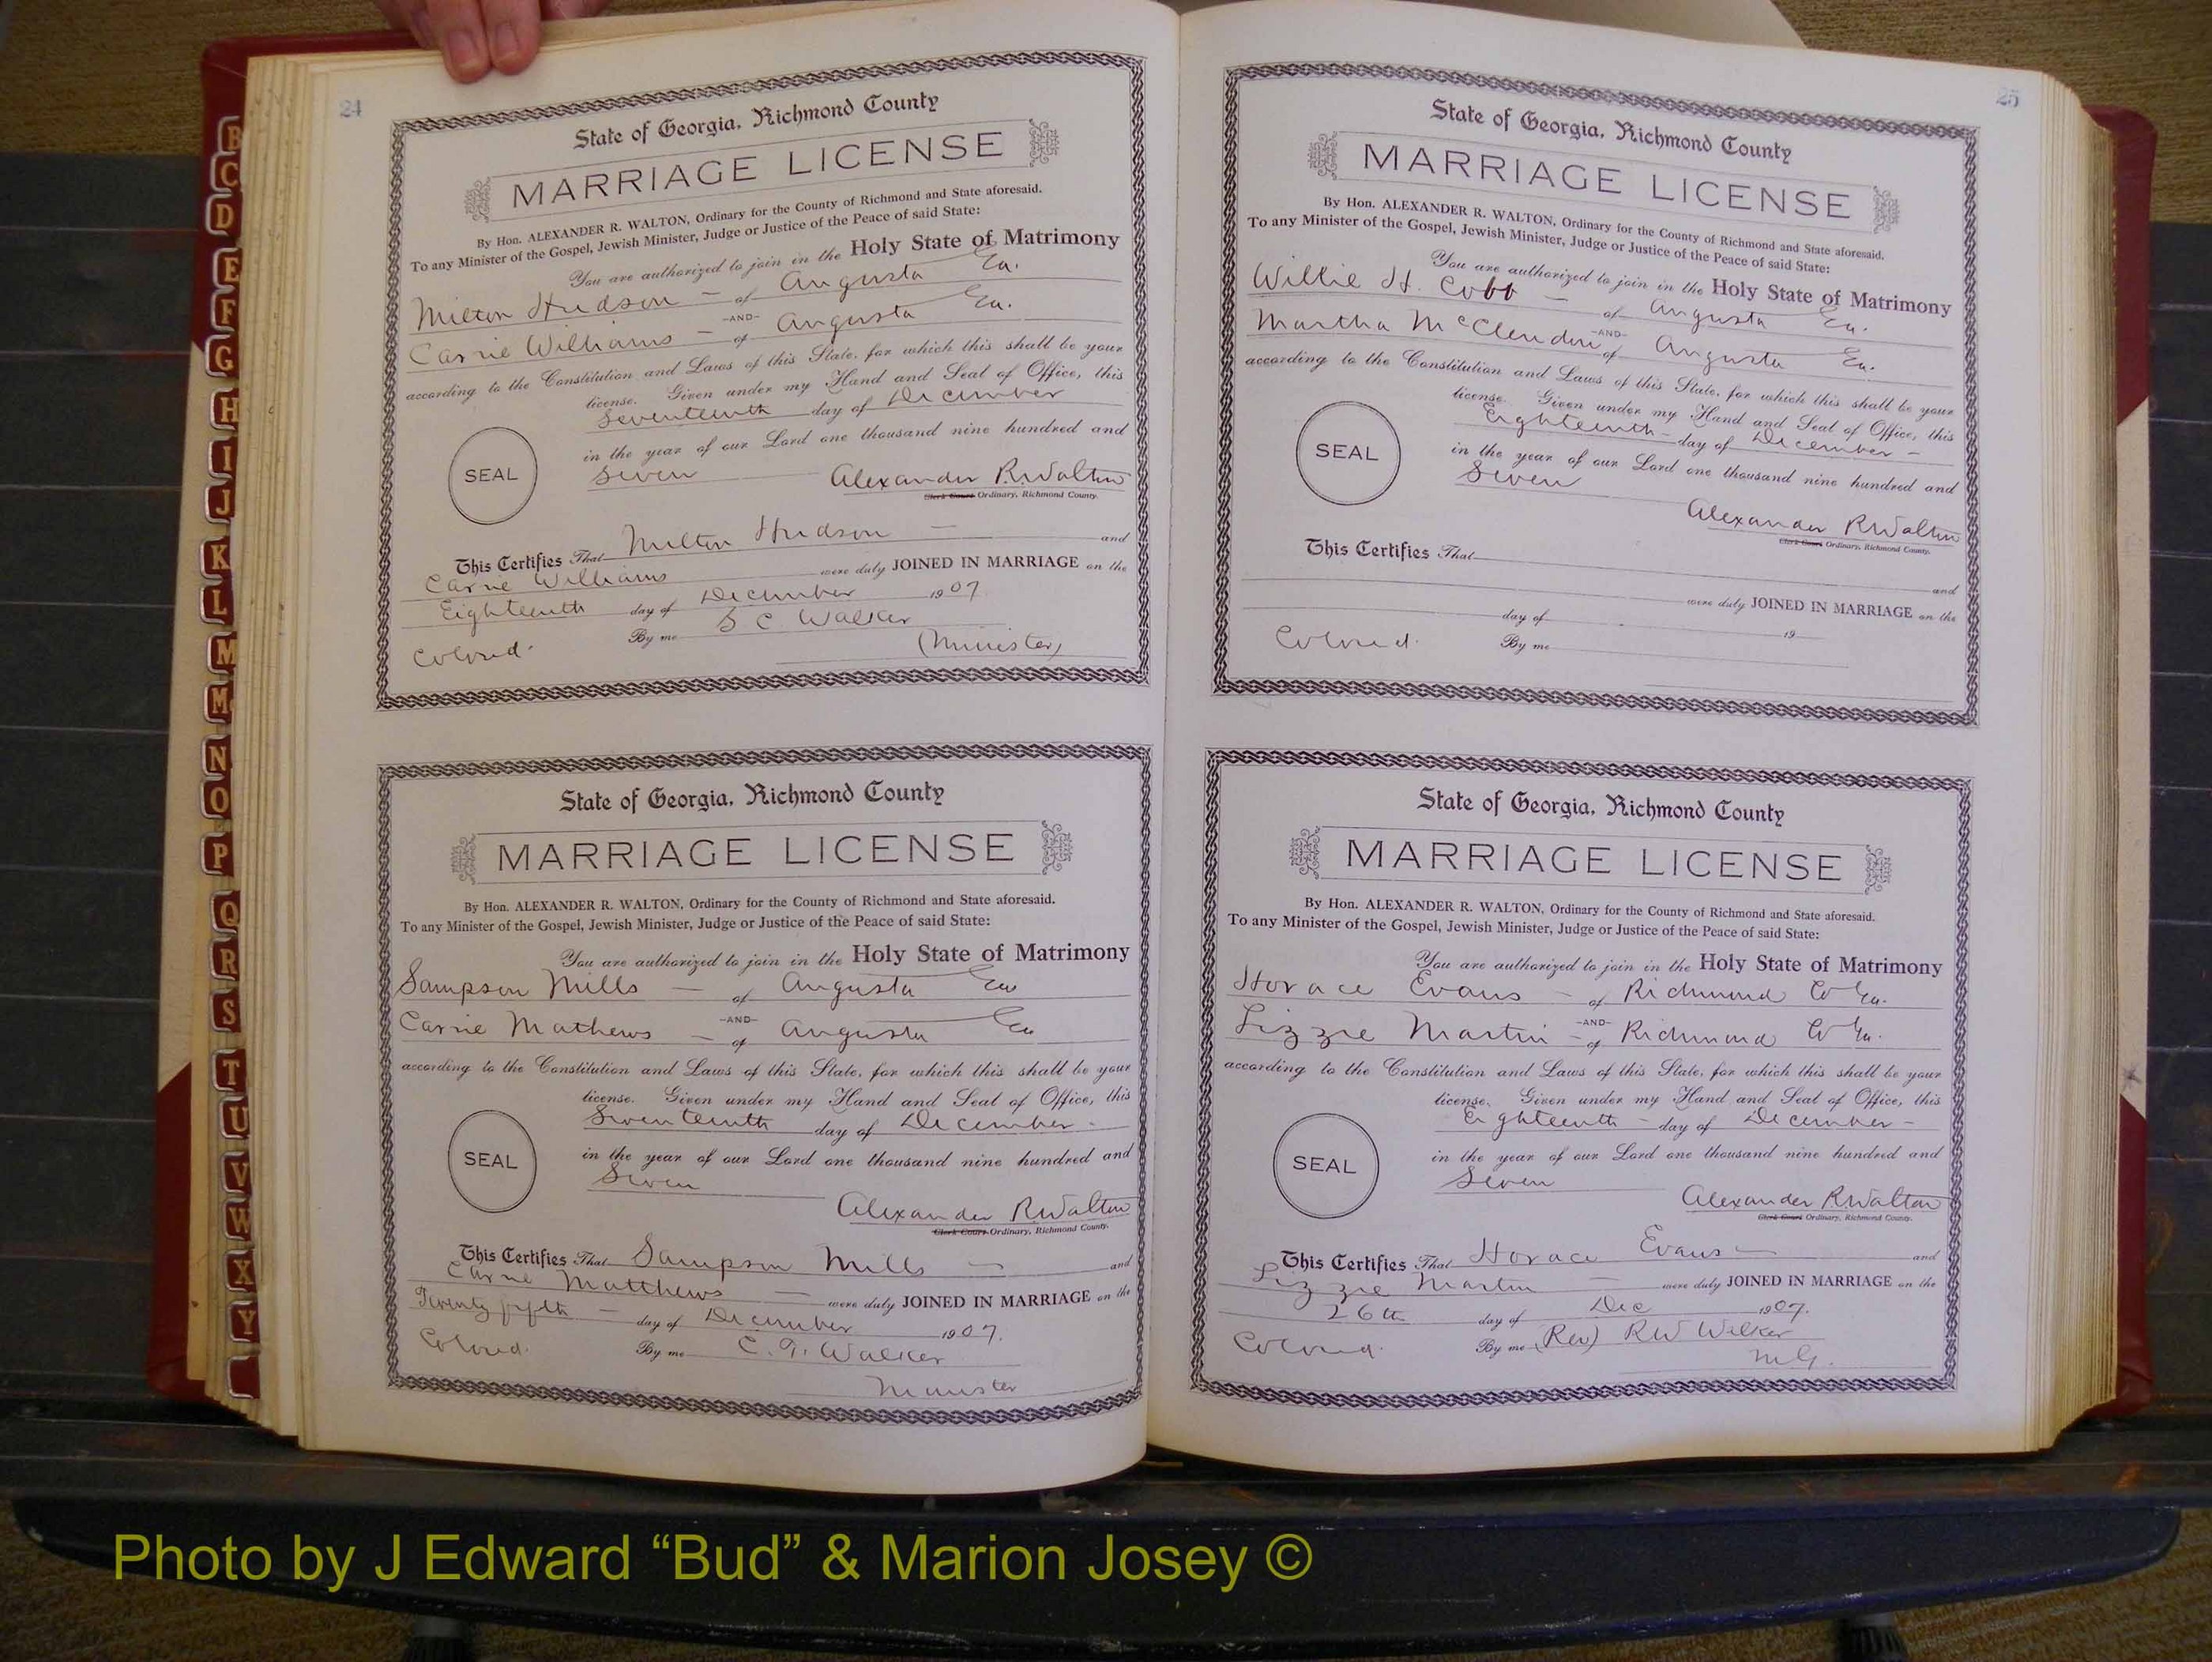 24
State of Georgia, Richmond County
MARRIAGE LICENSE
By Hon. ALEXANDER R. WALTON, Ordinary for the County of Richmond and State aforesaid.
To any Minister of the Gospel, Jewish Minister, Judge or Justice of the Peace of said State:
You are authorized to join in the Holy State of Matrimony
Milton Hudson — of Augusta Ga.
-AND-
Carrie Williams — of Augusta Ga.
according to the Constitution and Laws of this State, for which this shall be your
license. Given under my Hand and Seal of Office, this
Seventeenth day of December
in the year of our Lord one thousand nine hundred and
SEAL
Seven
Alexander R. Walton
Clerk Court Ordinary, Richmond County.
This Certifies That Milton Hudson — and
Carrie Williams were duly JOINED IN MARRIAGE on the
Eighteenth day of December 1907
Colored. By me S C Walker
(Minister)
State of Georgia, Richmond County
MARRIAGE LICENSE
By Hon. ALEXANDER R. WALTON, Ordinary for the County of Richmond and State aforesaid.
To any Minister of the Gospel, Jewish Minister, Judge or Justice of the Peace of said State:
You are authorized to join in the Holy State of Matrimony
Sampson Mills — of Augusta Ga
-AND-
Carrie Mathews — of Augusta Ga
according to the Constitution and Laws of this State, for which this shall be your
license. Given under my Hand and Seal of Office, this
Seventeenth day of December -
in the year of our Lord one thousand nine hundred and
SEAL
Seven
Alexander R. Walton
Clerk Court Ordinary, Richmond County.
This Certifies That Sampson Mills — and
Carrie Matthews — were duly JOINED IN MARRIAGE on the
Twenty fifth — day of December 1907.
Colored. By me C. T. Walker
Minister
25
State of Georgia, Richmond County
MARRIAGE LICENSE
By Hon. ALEXANDER R. WALTON, Ordinary for the County of Richmond and State aforesaid.
To any Minister of the Gospel, Jewish Minister, Judge or Justice of the Peace of said State:
You are authorized to join in the Holy State of Matrimony
Willie H. Cobb — of Augusta Ga.
-AND-
Martha McClendon of Augusta Ga.
according to the Constitution and Laws of this State, for which this shall be your
license. Given under my Hand and Seal of Office, this
Eighteenth - day of December -
in the year of our Lord one thousand nine hundred and
SEAL
Seven
Alexander R. Walton
Clerk Court Ordinary, Richmond County.
This Certifies That
and
were duly JOINED IN MARRIAGE on the
day of 19
Colored. By me
State of Georgia, Richmond County
MARRIAGE LICENSE
By Hon. ALEXANDER R. WALTON, Ordinary for the County of Richmond and State aforesaid.
To any Minister of the Gospel, Jewish Minister, Judge or Justice of the Peace of said State:
You are authorized to join in the Holy State of Matrimony
Horace Evans - of Richmond Co Ga.
-AND-
Lizzie Martin - of Richmond Co Ga.
according to the Constitution and Laws of this State, for which this shall be your
license. Given under my Hand and Seal of Office, this
Eighteenth - day of December -
in the year of our Lord one thousand nine hundred and
SEAL
Seven
Alexander R. Walton
Clerk Court Ordinary, Richmond County.
This Certifies That Horace Evans — and
Lizzie Martin — were duly JOINED IN MARRIAGE on the
26th day of Dec 1907.
Colored. By me (Rev) R W Walker
M.G.
B
C
D
E
F
G
H
I
J
K
L
M
Mc
N
O
P
Q
R
S
T
U
V
W
X
Y
Photo by J Edward “Bud” & Marion Josey ©